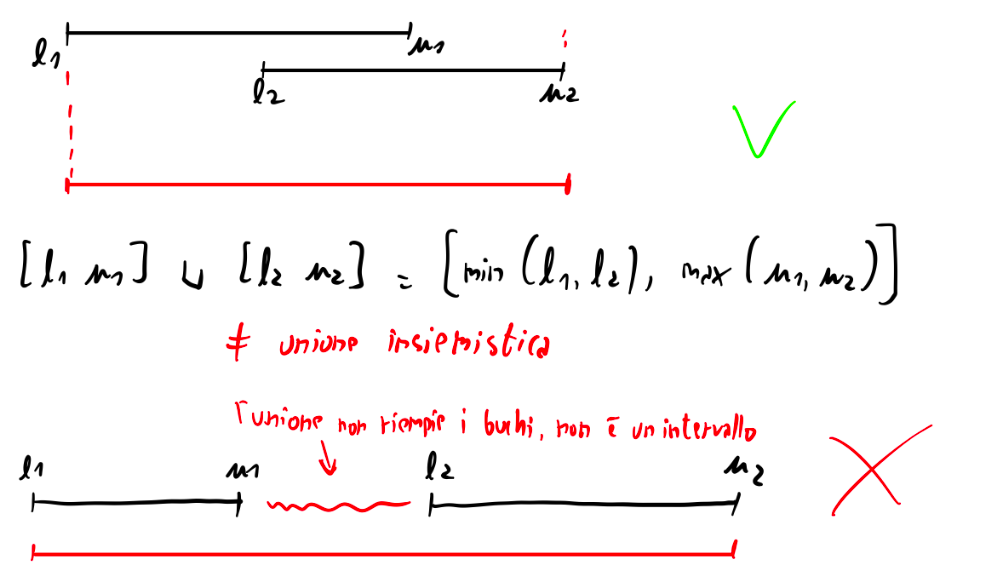 l1 u1
l2 u2
[l1 u1] ⊔ [l2 u2] = [min (l1, l2), max (u1, u2)]
≠ unione insiemistica
l'unione non riempie i buchi, non è un intervallo
l1 u1 l2 u2